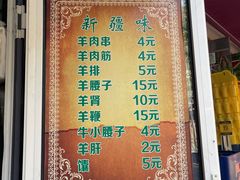 新疆味
羊肉串 4元
羊肉筋 4元
羊排 5元
羊腰子 15元
羊肾 10元
羊鞭 15元
牛小腰子 4元
羊肝 2元
馕 5元